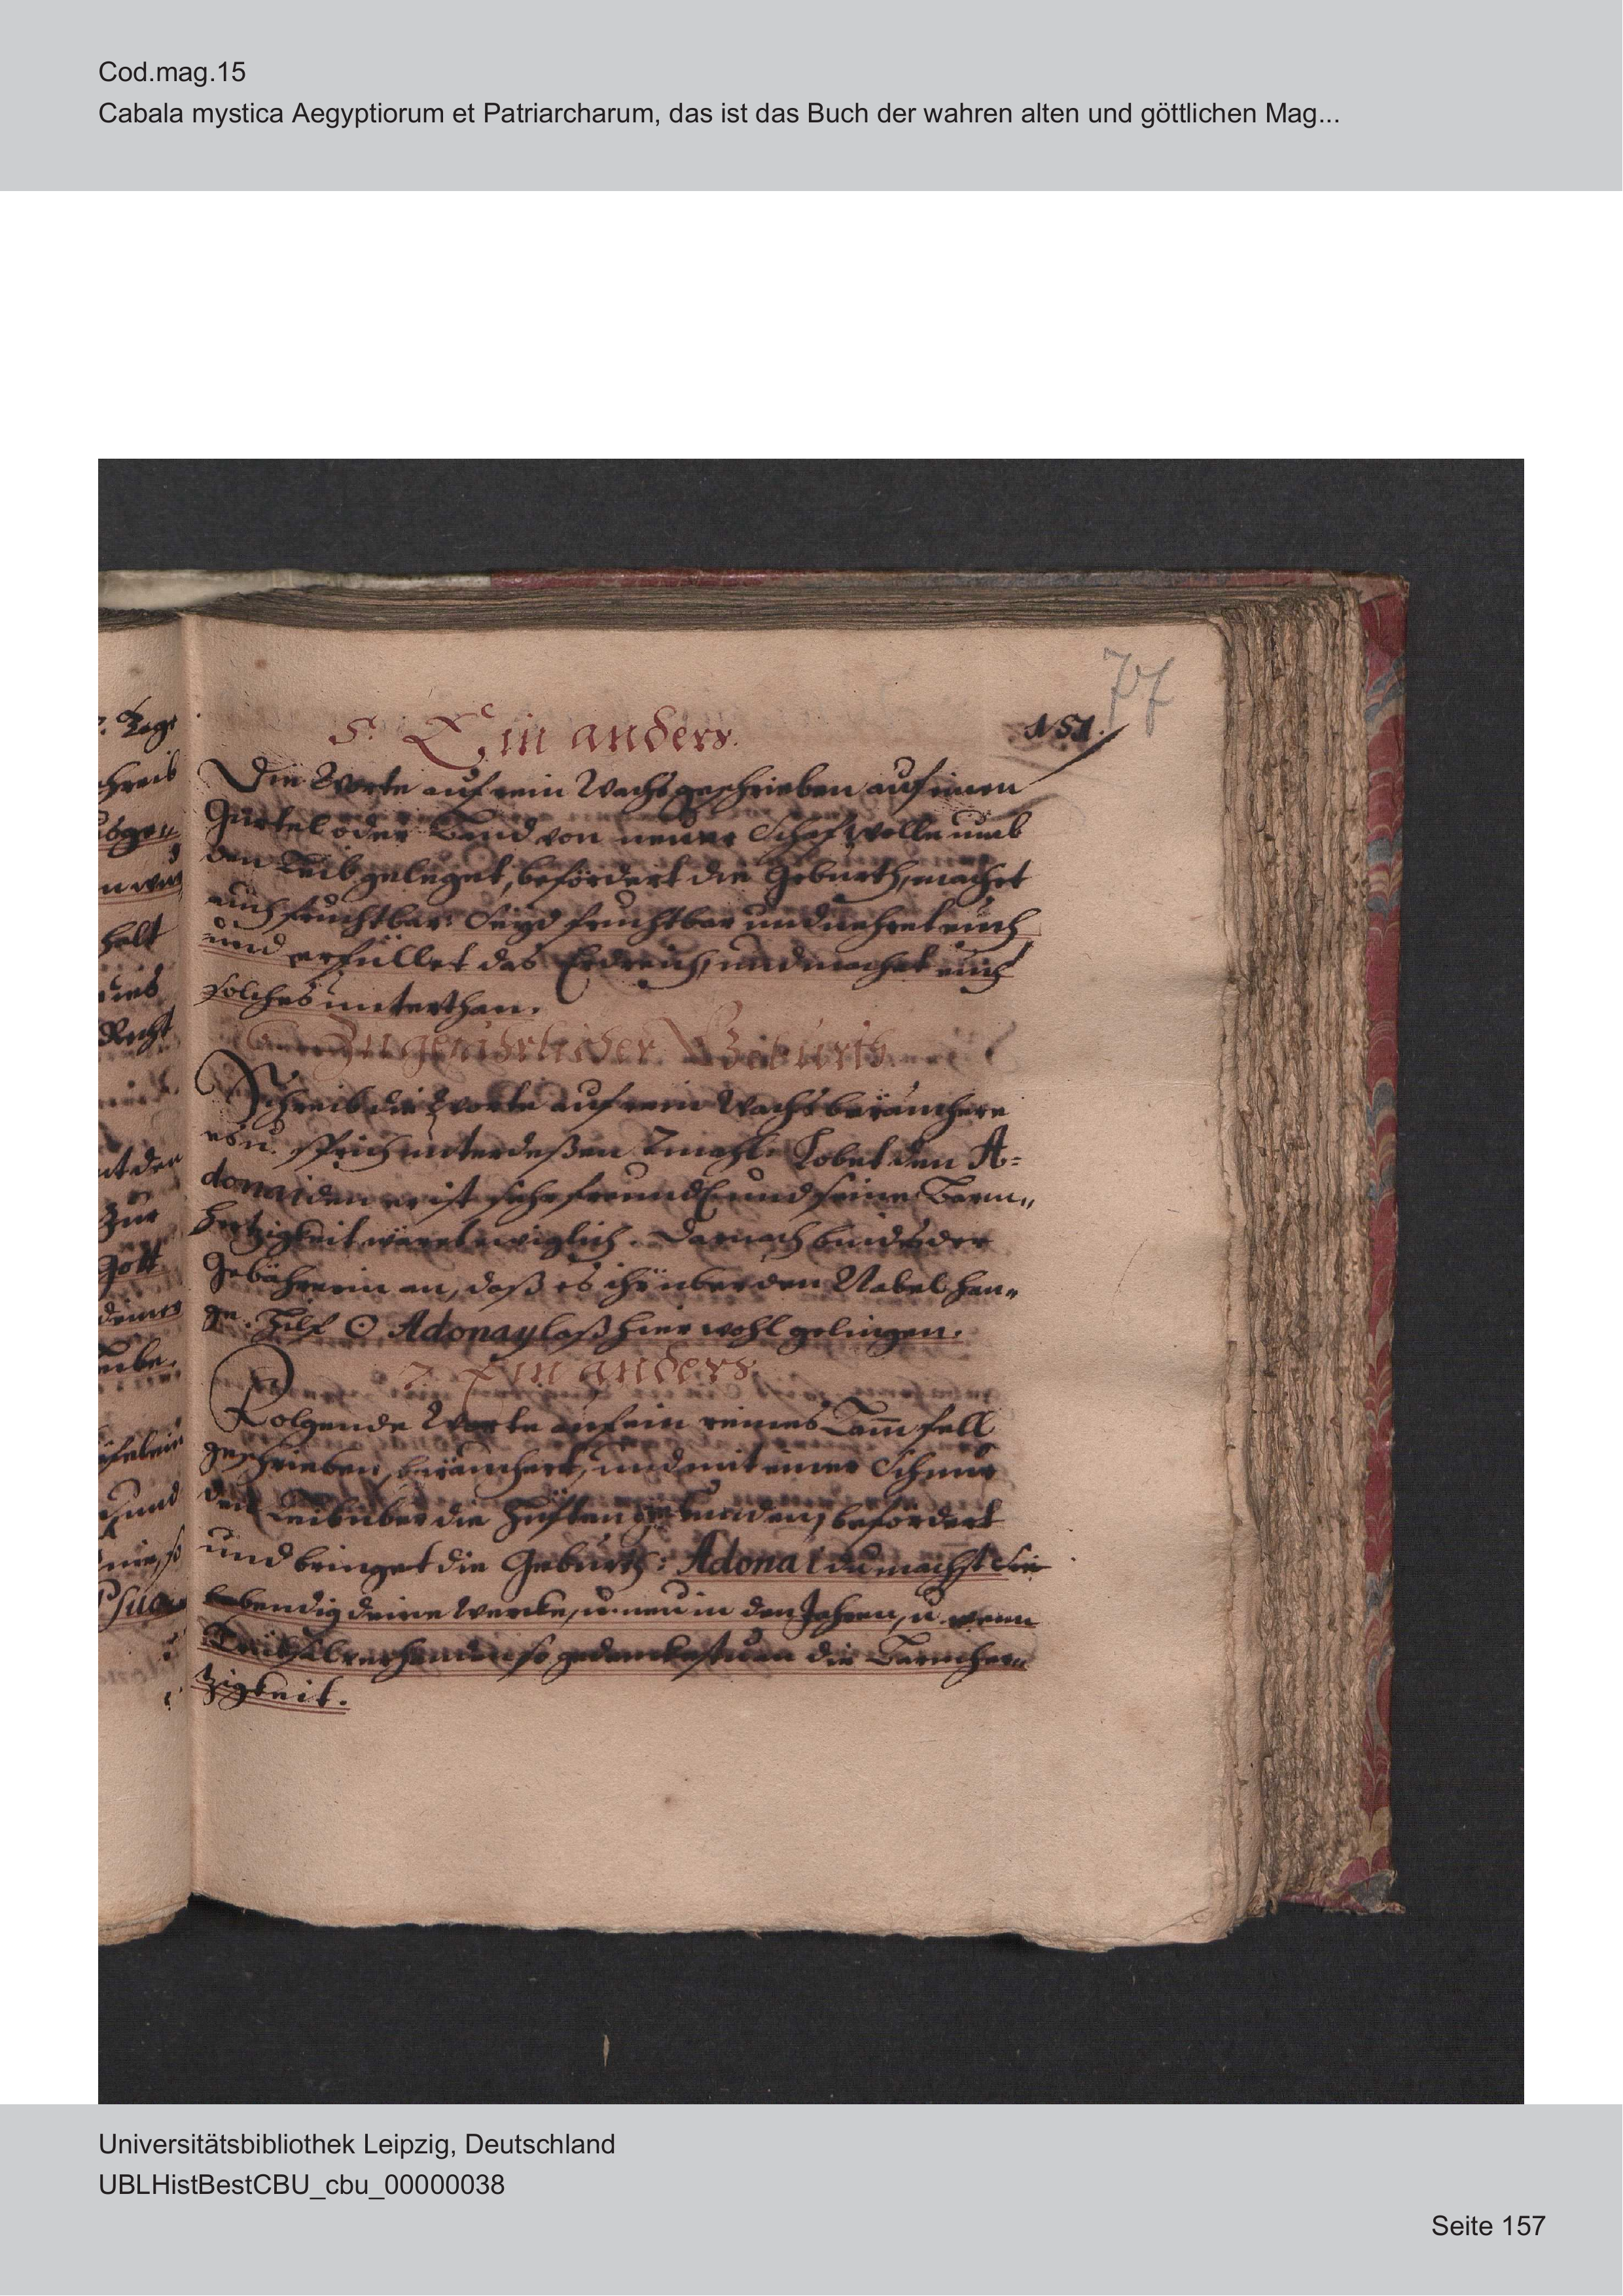 Cod.mag.15
Cabala mystica Aegyptiorum et Patriarcharum, das ist das Buch der wahren alten und göttlichen Mag...
77
151.
5. Ein anders.
Die Worte auf rein Wachs geschrieben auf einen
Gürtel oder Band von neuer Schafwolle umb
den Leib geleget, befördert die Geburth, machet
auch fruchtbar: Seyd fruchtbar und mehret euch
und erfüllet das Erdreich, und machet euch
solches unterthan.
Zu der Geburth
Schreib die Worte auf rein Wachs beräuchere
es u. sprich unterdeßen 7 mahl: Lobet den A=
donai den er ist sehr freundl. und seine Barm„
hertzigkeit wäret ewiglich. Darnach binds der
Gebährerin an, daß es ihr über den Nabel han„
ge. Hilf O Adonay laß hier wohl gelingen.
7. Ein anders.
Folgende Worte auf ein reines Lam̄fell
geschrieben, beräuchert, und mit einer Schnur
den Leib über die Hüften gebunden, befördert
und bringet die Geburth: Adonai du machst
lebendig deine Wercke, u. neu in den Jahren, u. wenn
Trübsal so gedenckestu an die Barmher„
tzigkeit.
Universitätsbibliothek Leipzig, Deutschland
UBLHistBestCBU_cbu_00000038
Seite 157